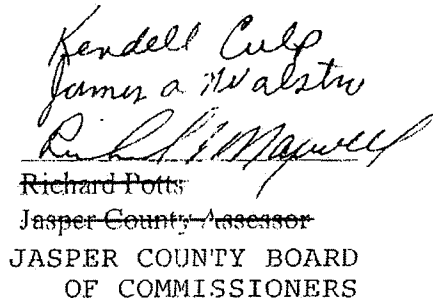 Kendell Culp
James A Walstra
Richard Maxwell
Richard Potts
Jasper County Assessor
JASPER COUNTY BOARD
OF COMMISSIONERS